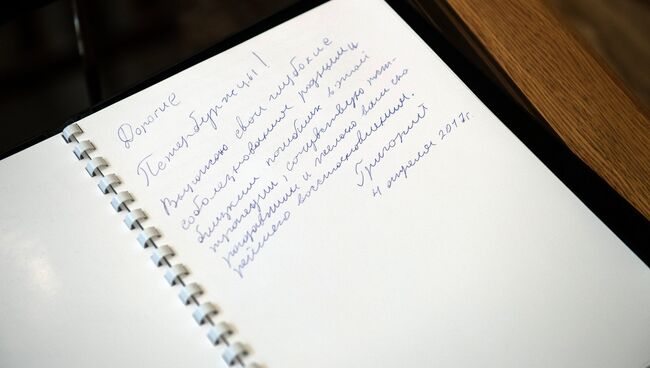 Дорогие
Петербуржцы!
Выражаю свои глубокие
соболезнования родным и
близким погибших в этой
трагедии, сочувствую пост-
радавшим и желаю вам ско-
рейшего восстановления.
Григорий
4 апреля 2017г.